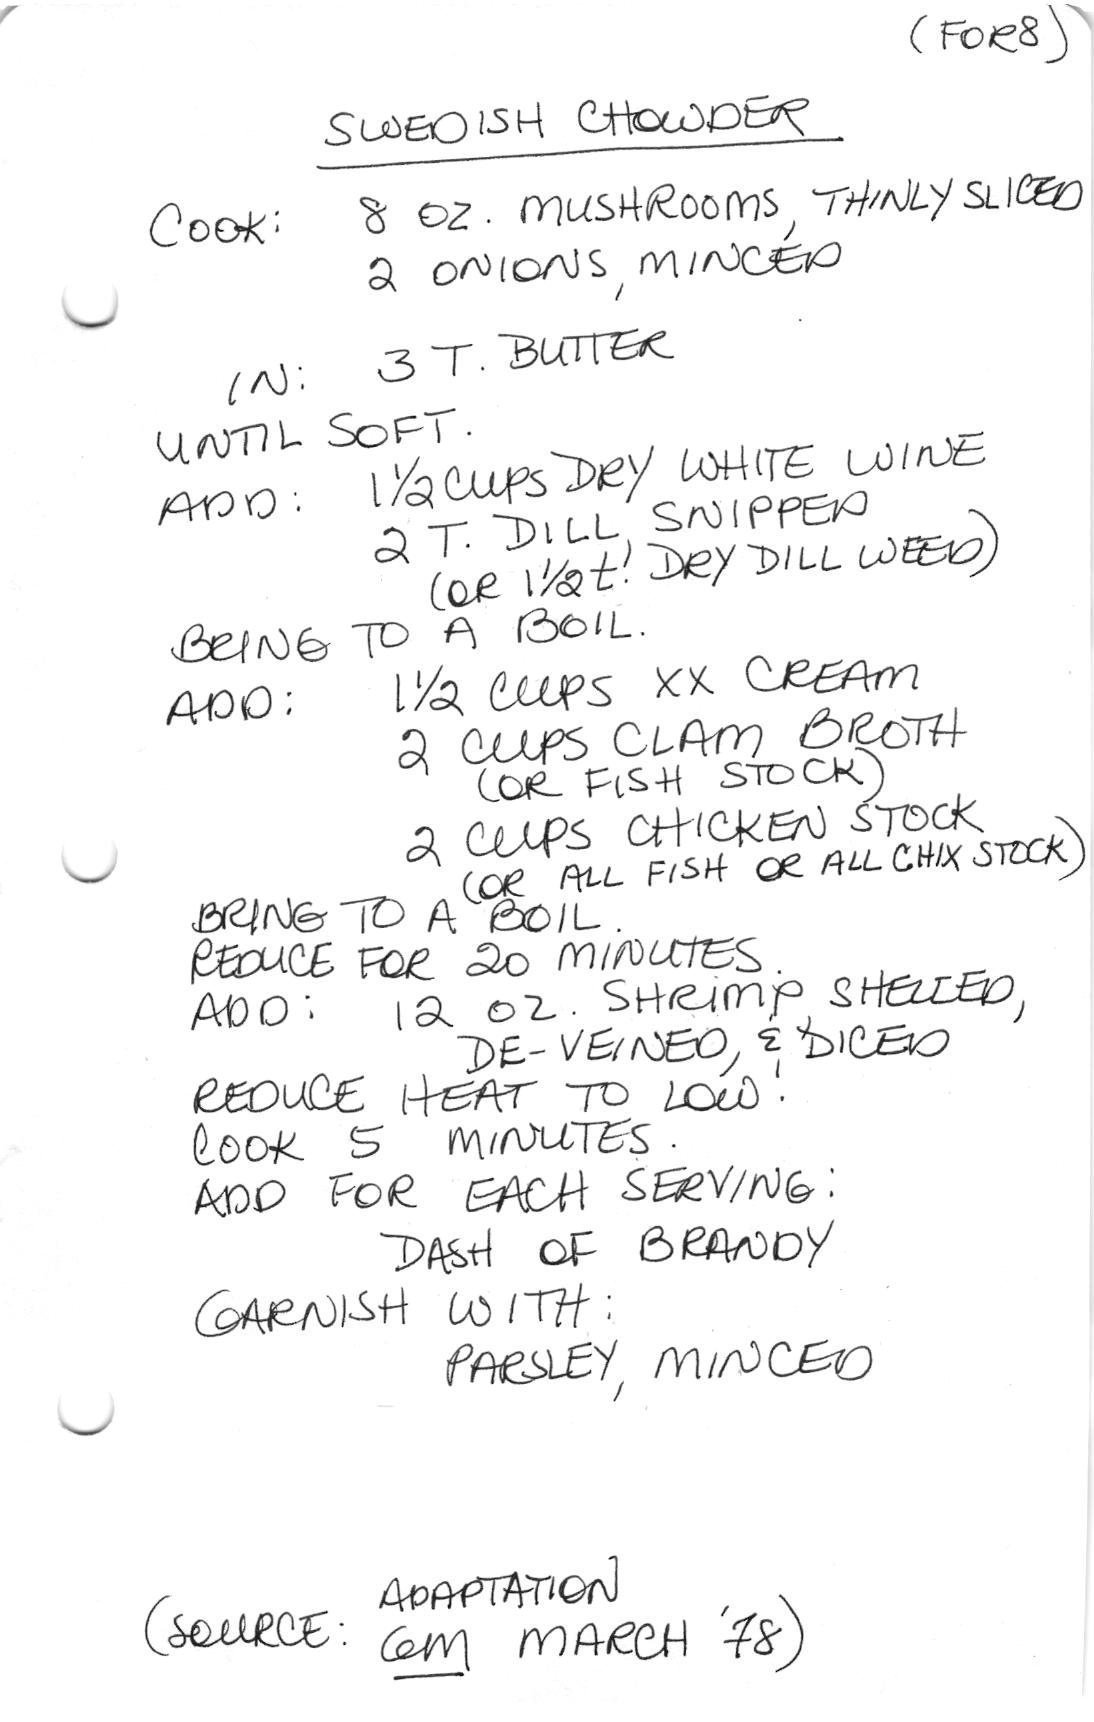 (FOR 8)
SWEDISH CHOWDER
COOK: 8 OZ. MUSHROOMS, THINLY SLICED
2 ONIONS, MINCED
IN: 3 T. BUTTER
UNTIL SOFT.
ADD: 1½ CUPS DRY WHITE WINE
2 T. DILL, SNIPPED
(OR 1½ t. DRY DILL WEED)
BRING TO A BOIL.
ADD: 1½ CUPS XX CREAM
2 CUPS CLAM BROTH
(OR FISH STOCK)
2 CUPS CHICKEN STOCK
(OR ALL FISH OR ALL CHIX STOCK)
BRING TO A BOIL.
REDUCE FOR 20 MINUTES.
ADD: 12 OZ. SHRIMP, SHELLED,
DE-VEINED, & DICED
REDUCE HEAT TO LOW.
COOK 5 MINUTES.
ADD FOR EACH SERVING:
DASH OF BRANDY
GARNISH WITH:
PARSLEY, MINCED
ADAPTATION
(SOURCE: GM MARCH '78)